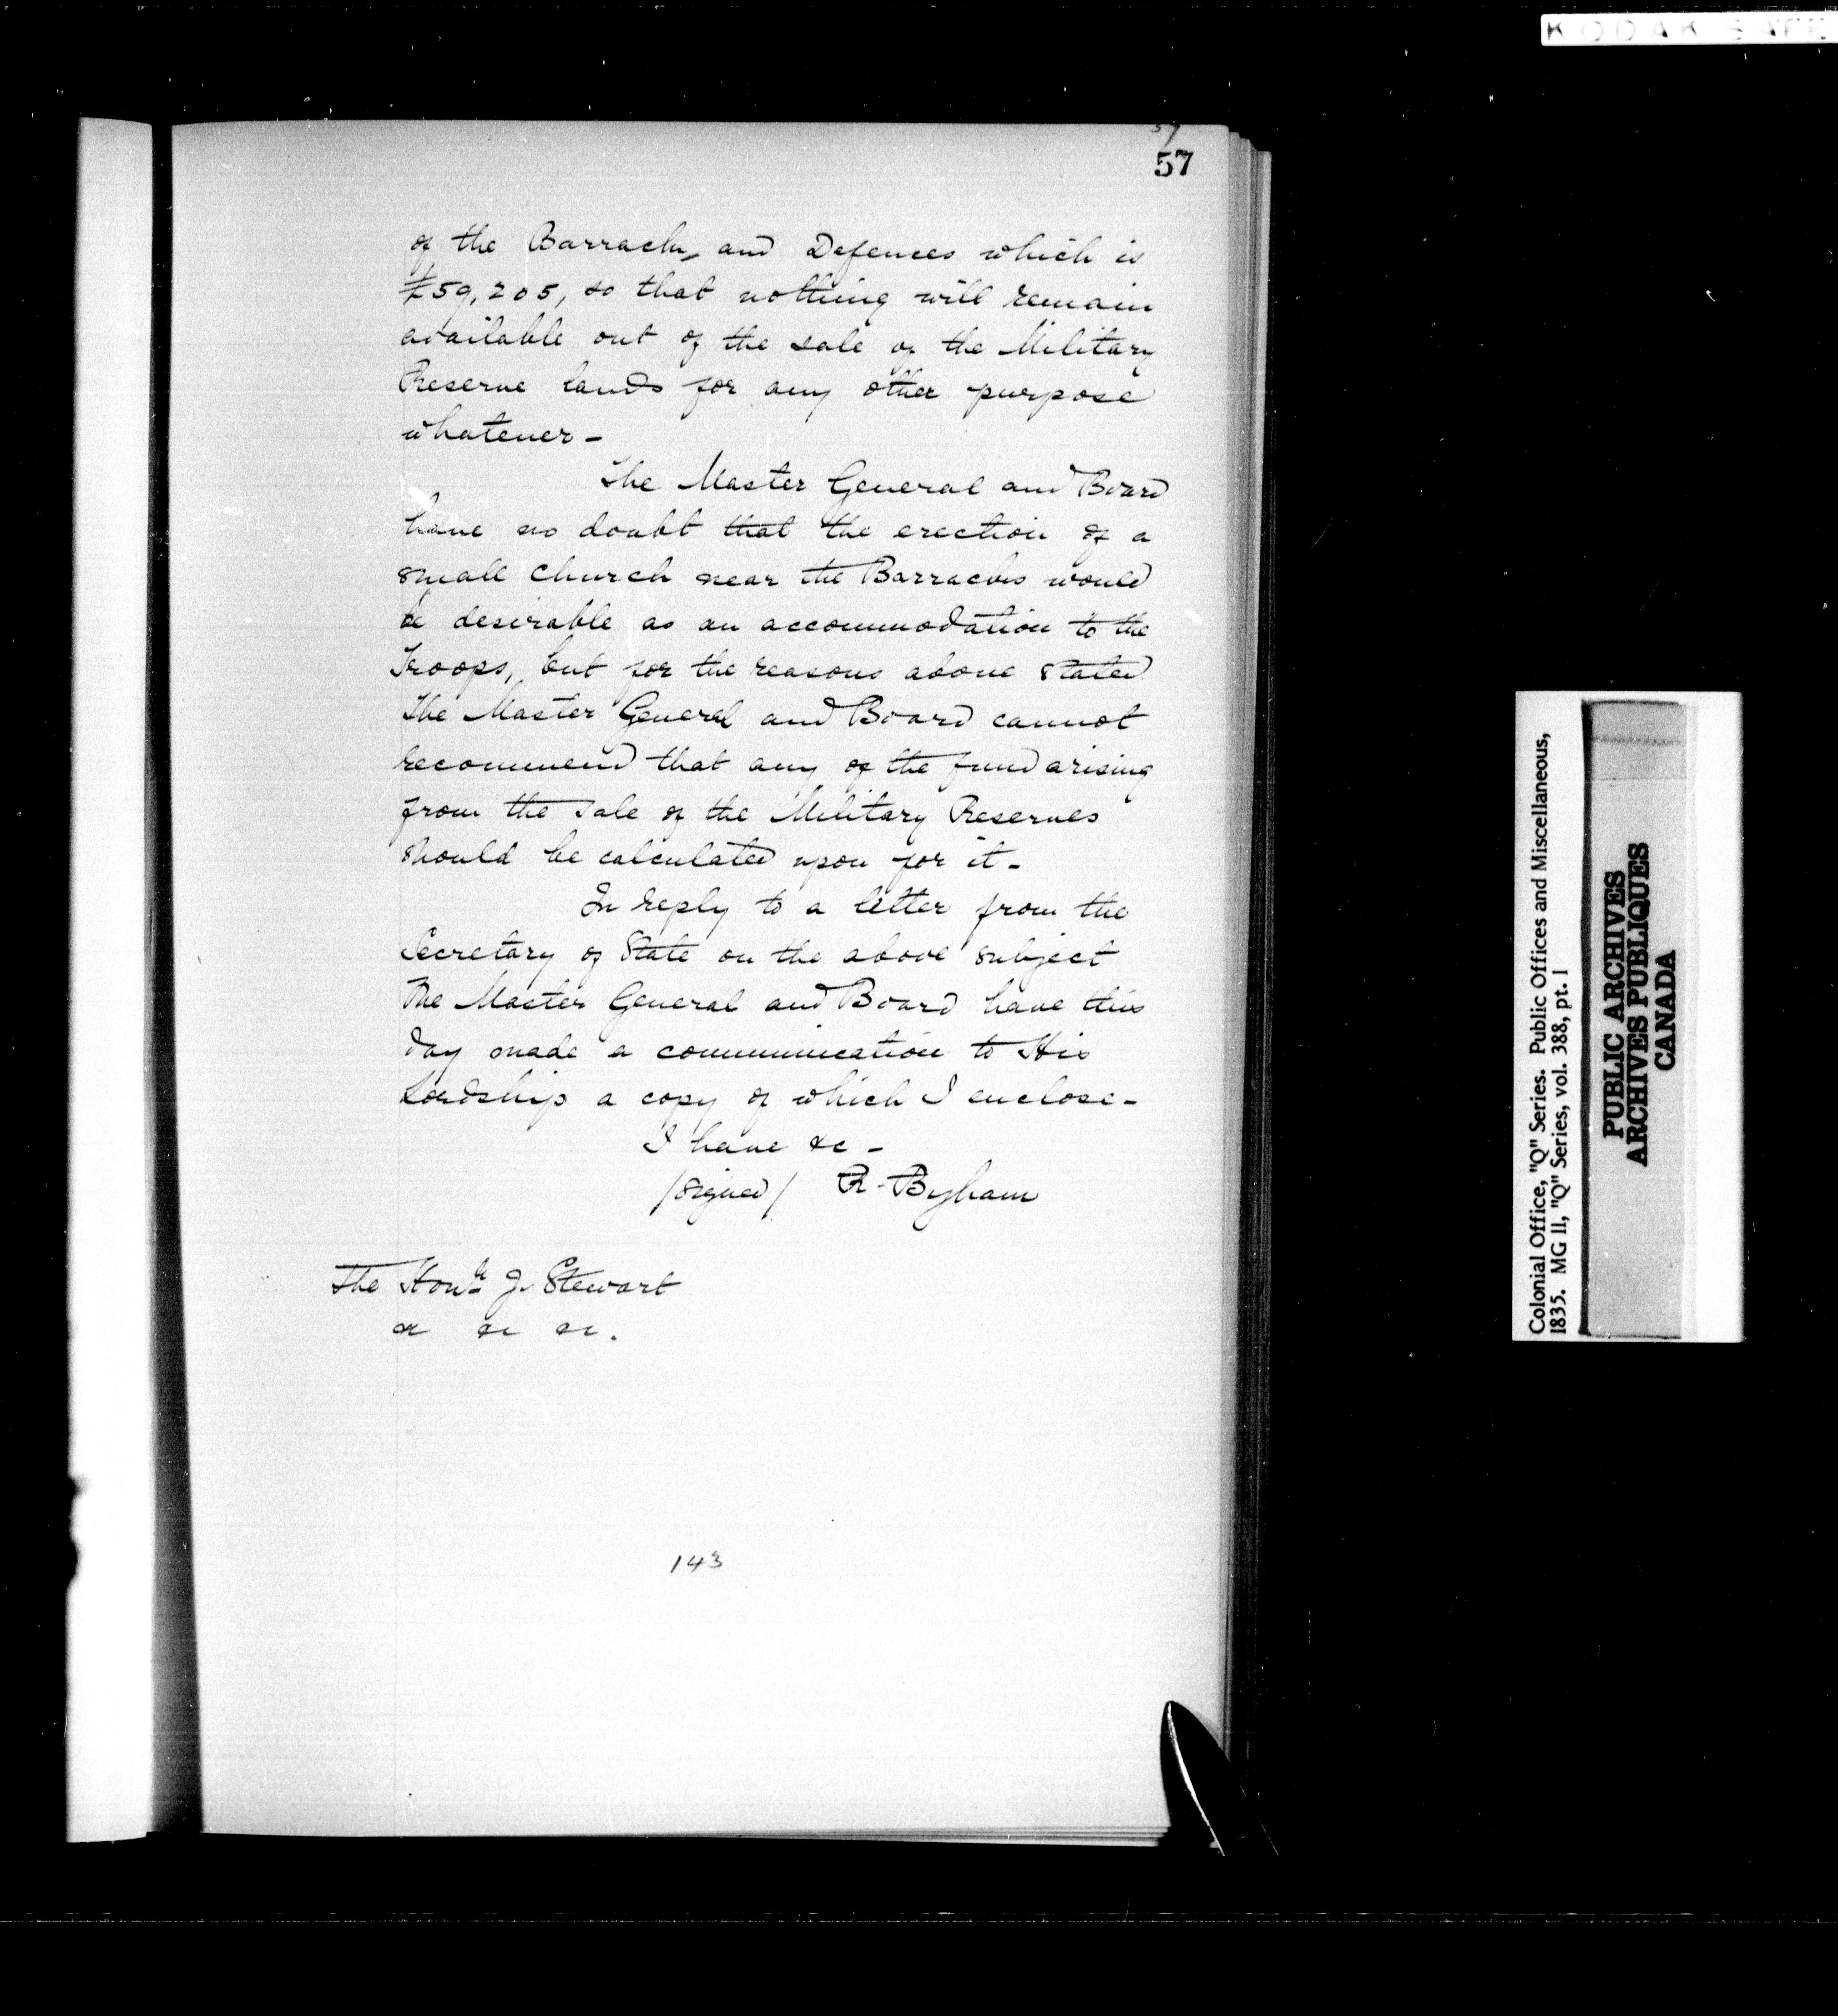 KODAK SAFE
57
57
of the Barracks, and Defences which is
£59,205, so that nothing will remain
available out of the sale of the Military
Reserve lands for any other purpose
whatever -
The Master General and Board
have no doubt that the erection of a
small church near the Barracks would
be desirable as an accommodation to the
Troops, but for the reasons above stated
the Master General and Board cannot
recommend that any of the fund arising
from the sale of the Military Reserves
should be calculated upon for it -
In reply to a letter from the
Secretary of State on the above subject
The Master General and Board have this
day made a communication to His
Lordship a copy of which I enclose -
I have &c -
/signed/ R. Byham
The Honle J. Stewart
&c &c &c.
143
Colonial Office, "Q" Series. Public Offices and Miscellaneous,
1835. MG 11, "Q" Series, vol. 388, pt. 1
PUBLIC ARCHIVES
ARCHIVES PUBLIQUES
CANADA